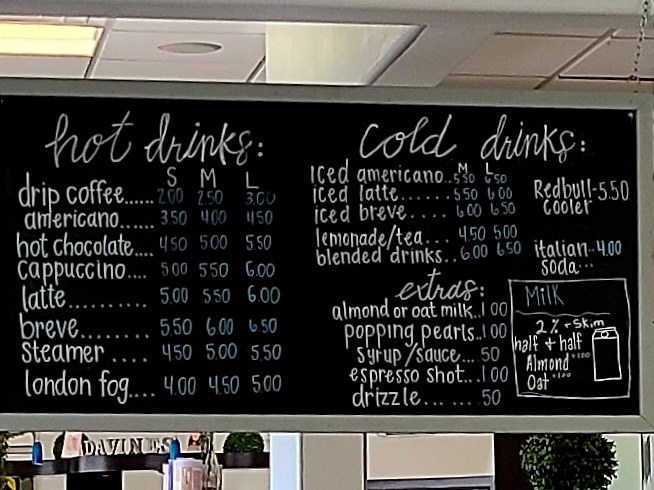 hot drinks:
S M L
drip coffee...... 2.00 2.50 3.00
americano...... 3.50 4.00 4.50
hot chocolate.... 4.50 5.00 5.50
cappuccino.... 5.00 5.50 6.00
latte.......... 5.00 5.50 6.00
breve......... 5.50 6.00 6.50
steamer .... 4.50 5.00 5.50
london fog.... 4.00 4.50 5.00
cold drinks:
M L
Iced americano.. 5.50 6.50
iced latte....... 5.50 6.00
iced breve...... 6.00 6.50
lemonade/tea... 4.50 5.00
blended drinks.. 6.00 6.50
Redbull-5.50
cooler
italian..4.00
soda...
extras:
almond or oat milk..1.00
popping pearls..1.00
syrup/sauce... .50
espresso shot...1.00
drizzle....... .50
Milk
2% + Skim
half + half
Almond +1.00
Oat +1.00
DAVINES